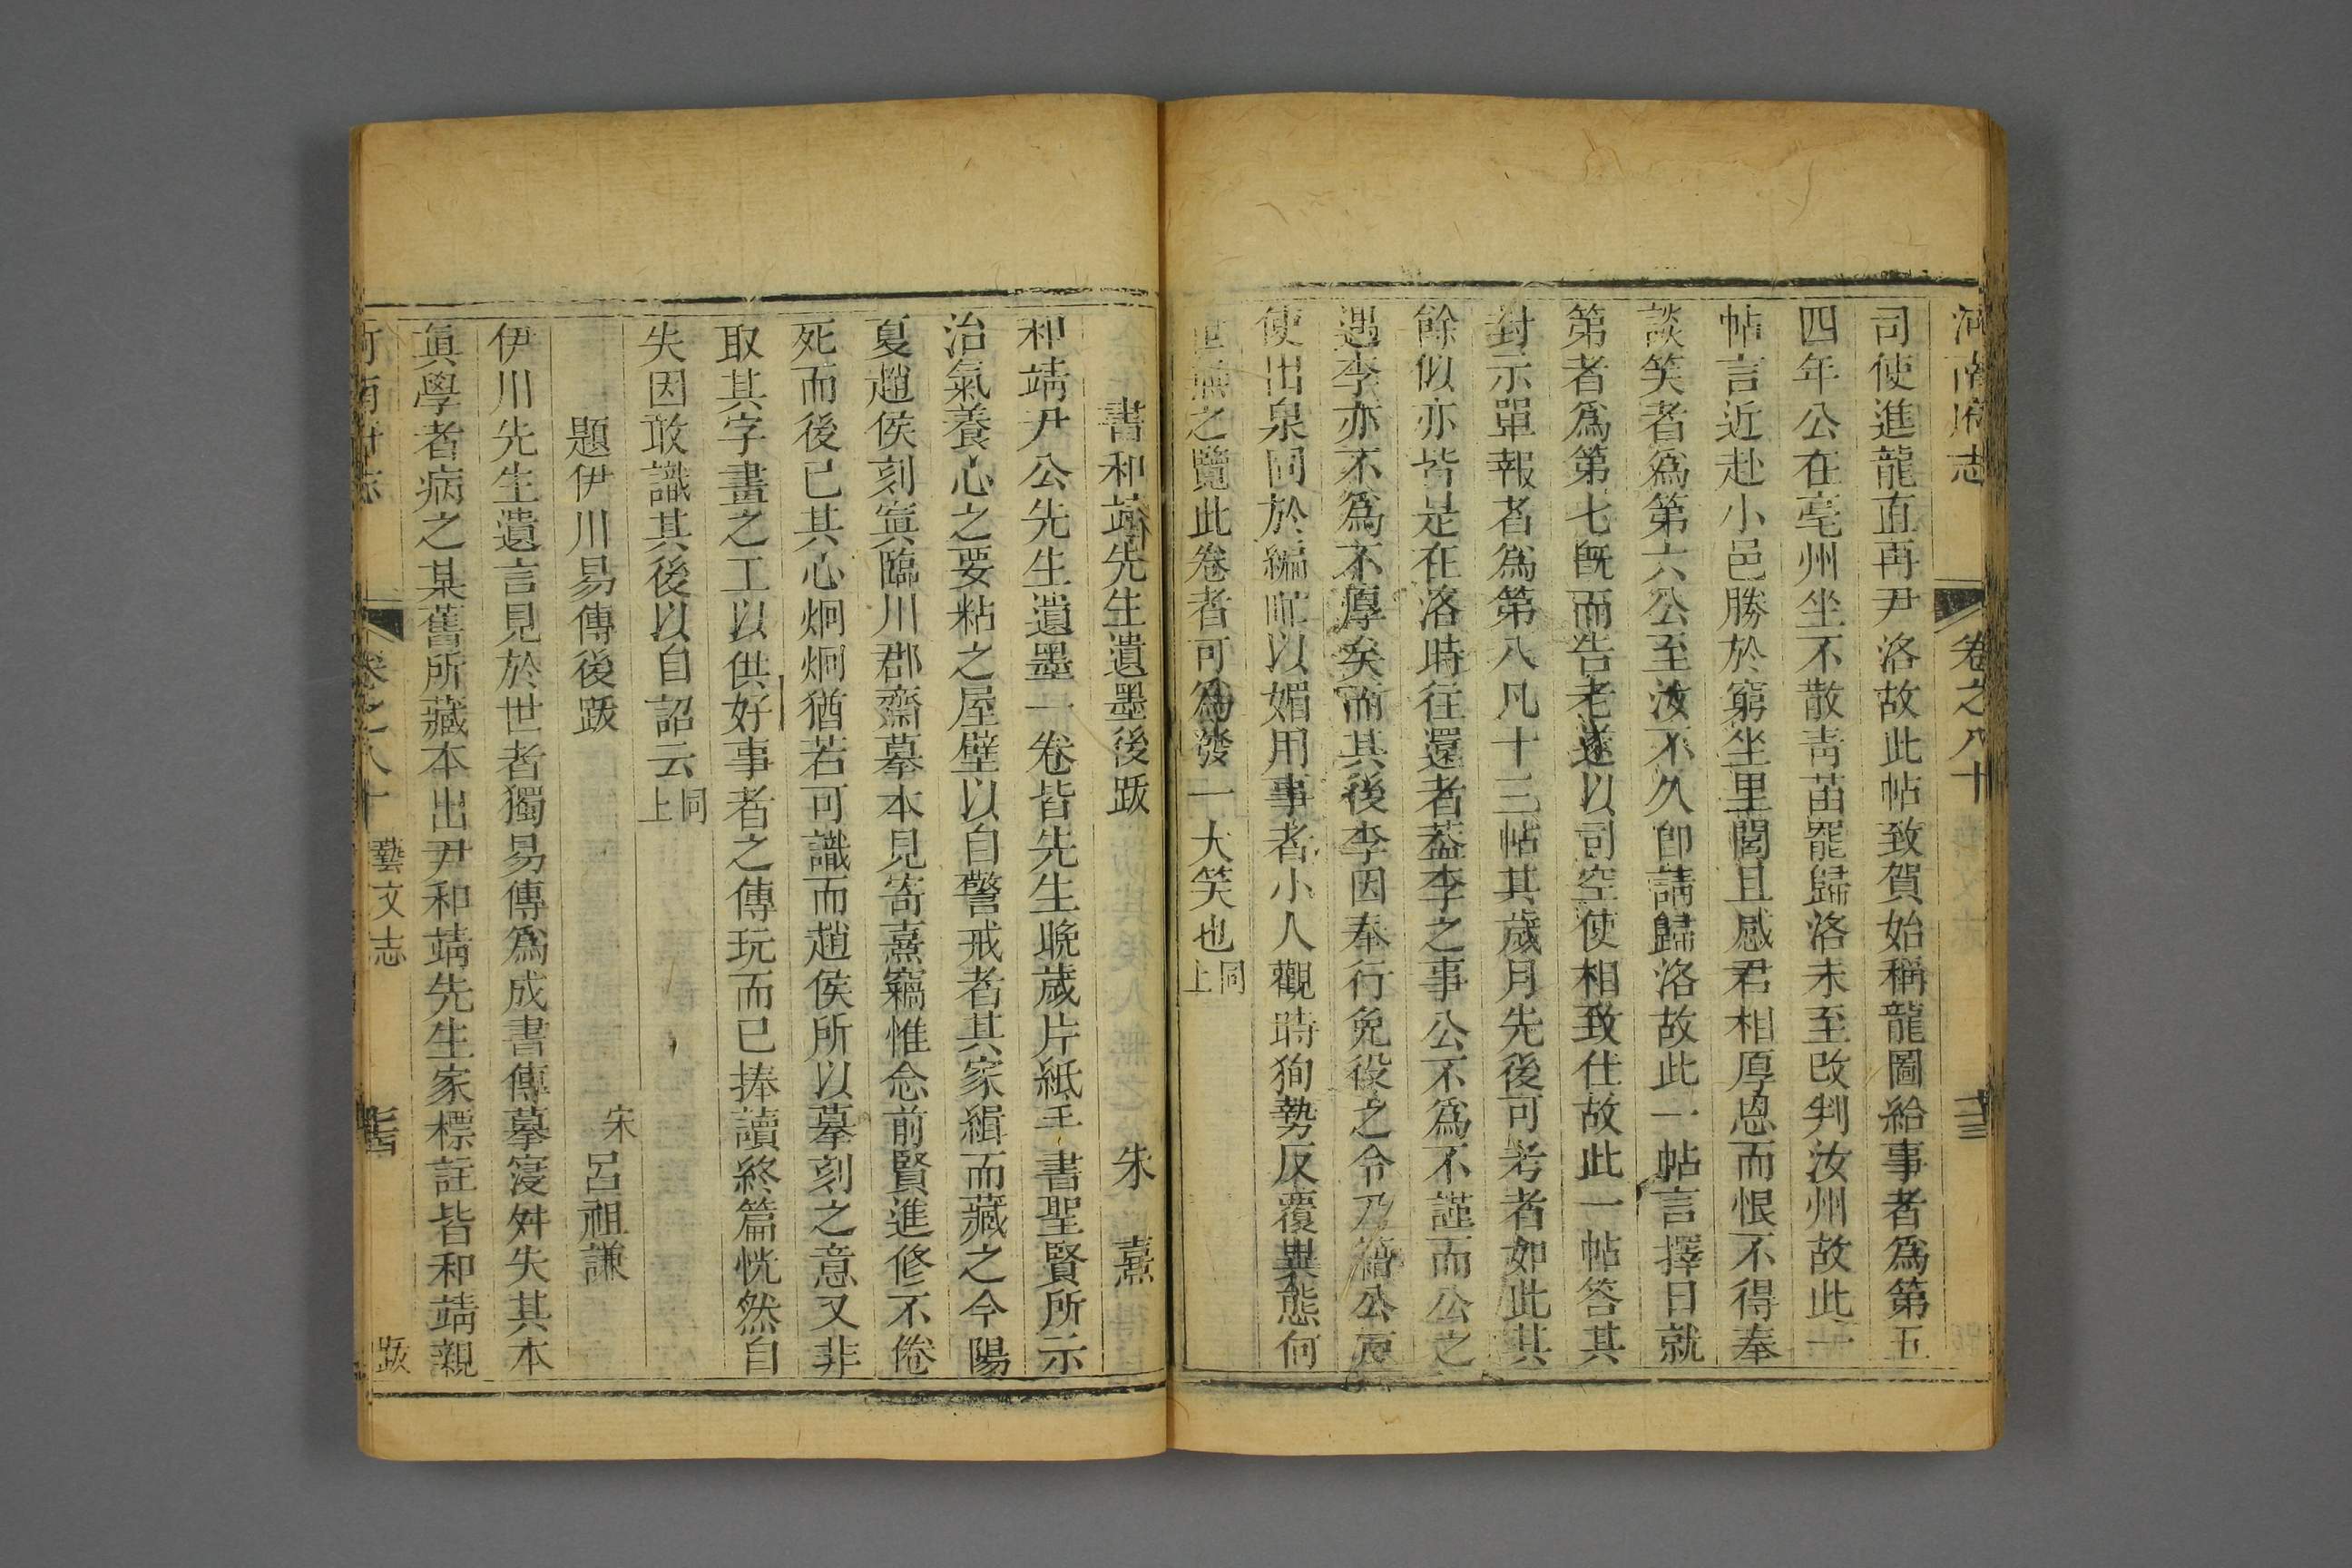 河南府志 卷之八十
司使進龍直再尹洛故此帖致賀始稱龍圖給事者爲第五
四年公在亳州坐不散靑苗罷歸洛未至改判汝州故此一
帖言近赴小邑勝於窮坐里閭且感君相厚恩而恨不得奉
談笑者爲第六公至汝不久卽請歸洛故此一帖言擇日就
第者爲第七旣而告老遂以司空使相致仕故此一帖答其
對示單報者爲第八凡十三帖其歲月先後可考者如此其
餘似亦皆是在洛時往還者葢李之事公不爲不謹而公之
遇李亦不爲不厚矣而其後李因奉行免役之令乃籍公戶
使出泉同於編甿以媚用事者小人觀時狥勢反覆異態何
之覽此卷者可爲發一大笑也同上
書和靖先生遺墨後跋 朱熹
和靖尹公先生遺墨一卷皆先生晩歲片紙手書聖賢所示
治氣養心之要粘之屋壁以自警戒者其家緝而藏之今陽
夏趙侯刻寘臨川郡齋摹本見寄熹竊惟念前賢進修不倦
死而後已其心炯炯猶若可識而趙侯所以摹刻之意又非
取其字畫之工以供好事者之傳玩而已捧讀終篇恍然自
失因敢識其後以自詔云同上
題伊川易傳後跋 宋呂祖謙
伊川先生遺言見於世者獨易傳爲成書傳摹寖舛失其本
眞學者病之某舊所藏本出尹和靖先生家標註皆和靖親
河南府志 卷之八十 藝文志 跋